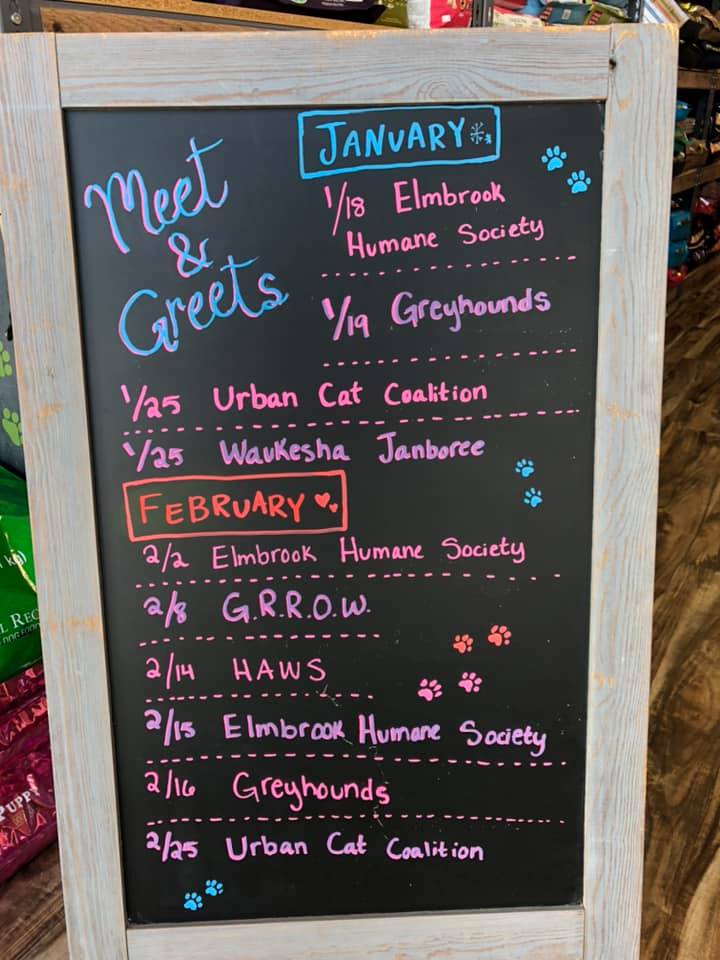 Meet
&
Greets
JANUARY
1/18 Elmbrook
Humane Society
1/19 Greyhounds
1/25 Urban Cat Coalition
1/25 Waukesha Janboree
FEBRUARY
2/2 Elmbrook Humane Society
2/8 G.R.R.O.W.
2/14 HAWS
2/15 Elmbrook Humane Society
2/16 Greyhounds
2/25 Urban Cat Coalition
kg)
L REC
DOG FOOD
PUPPY